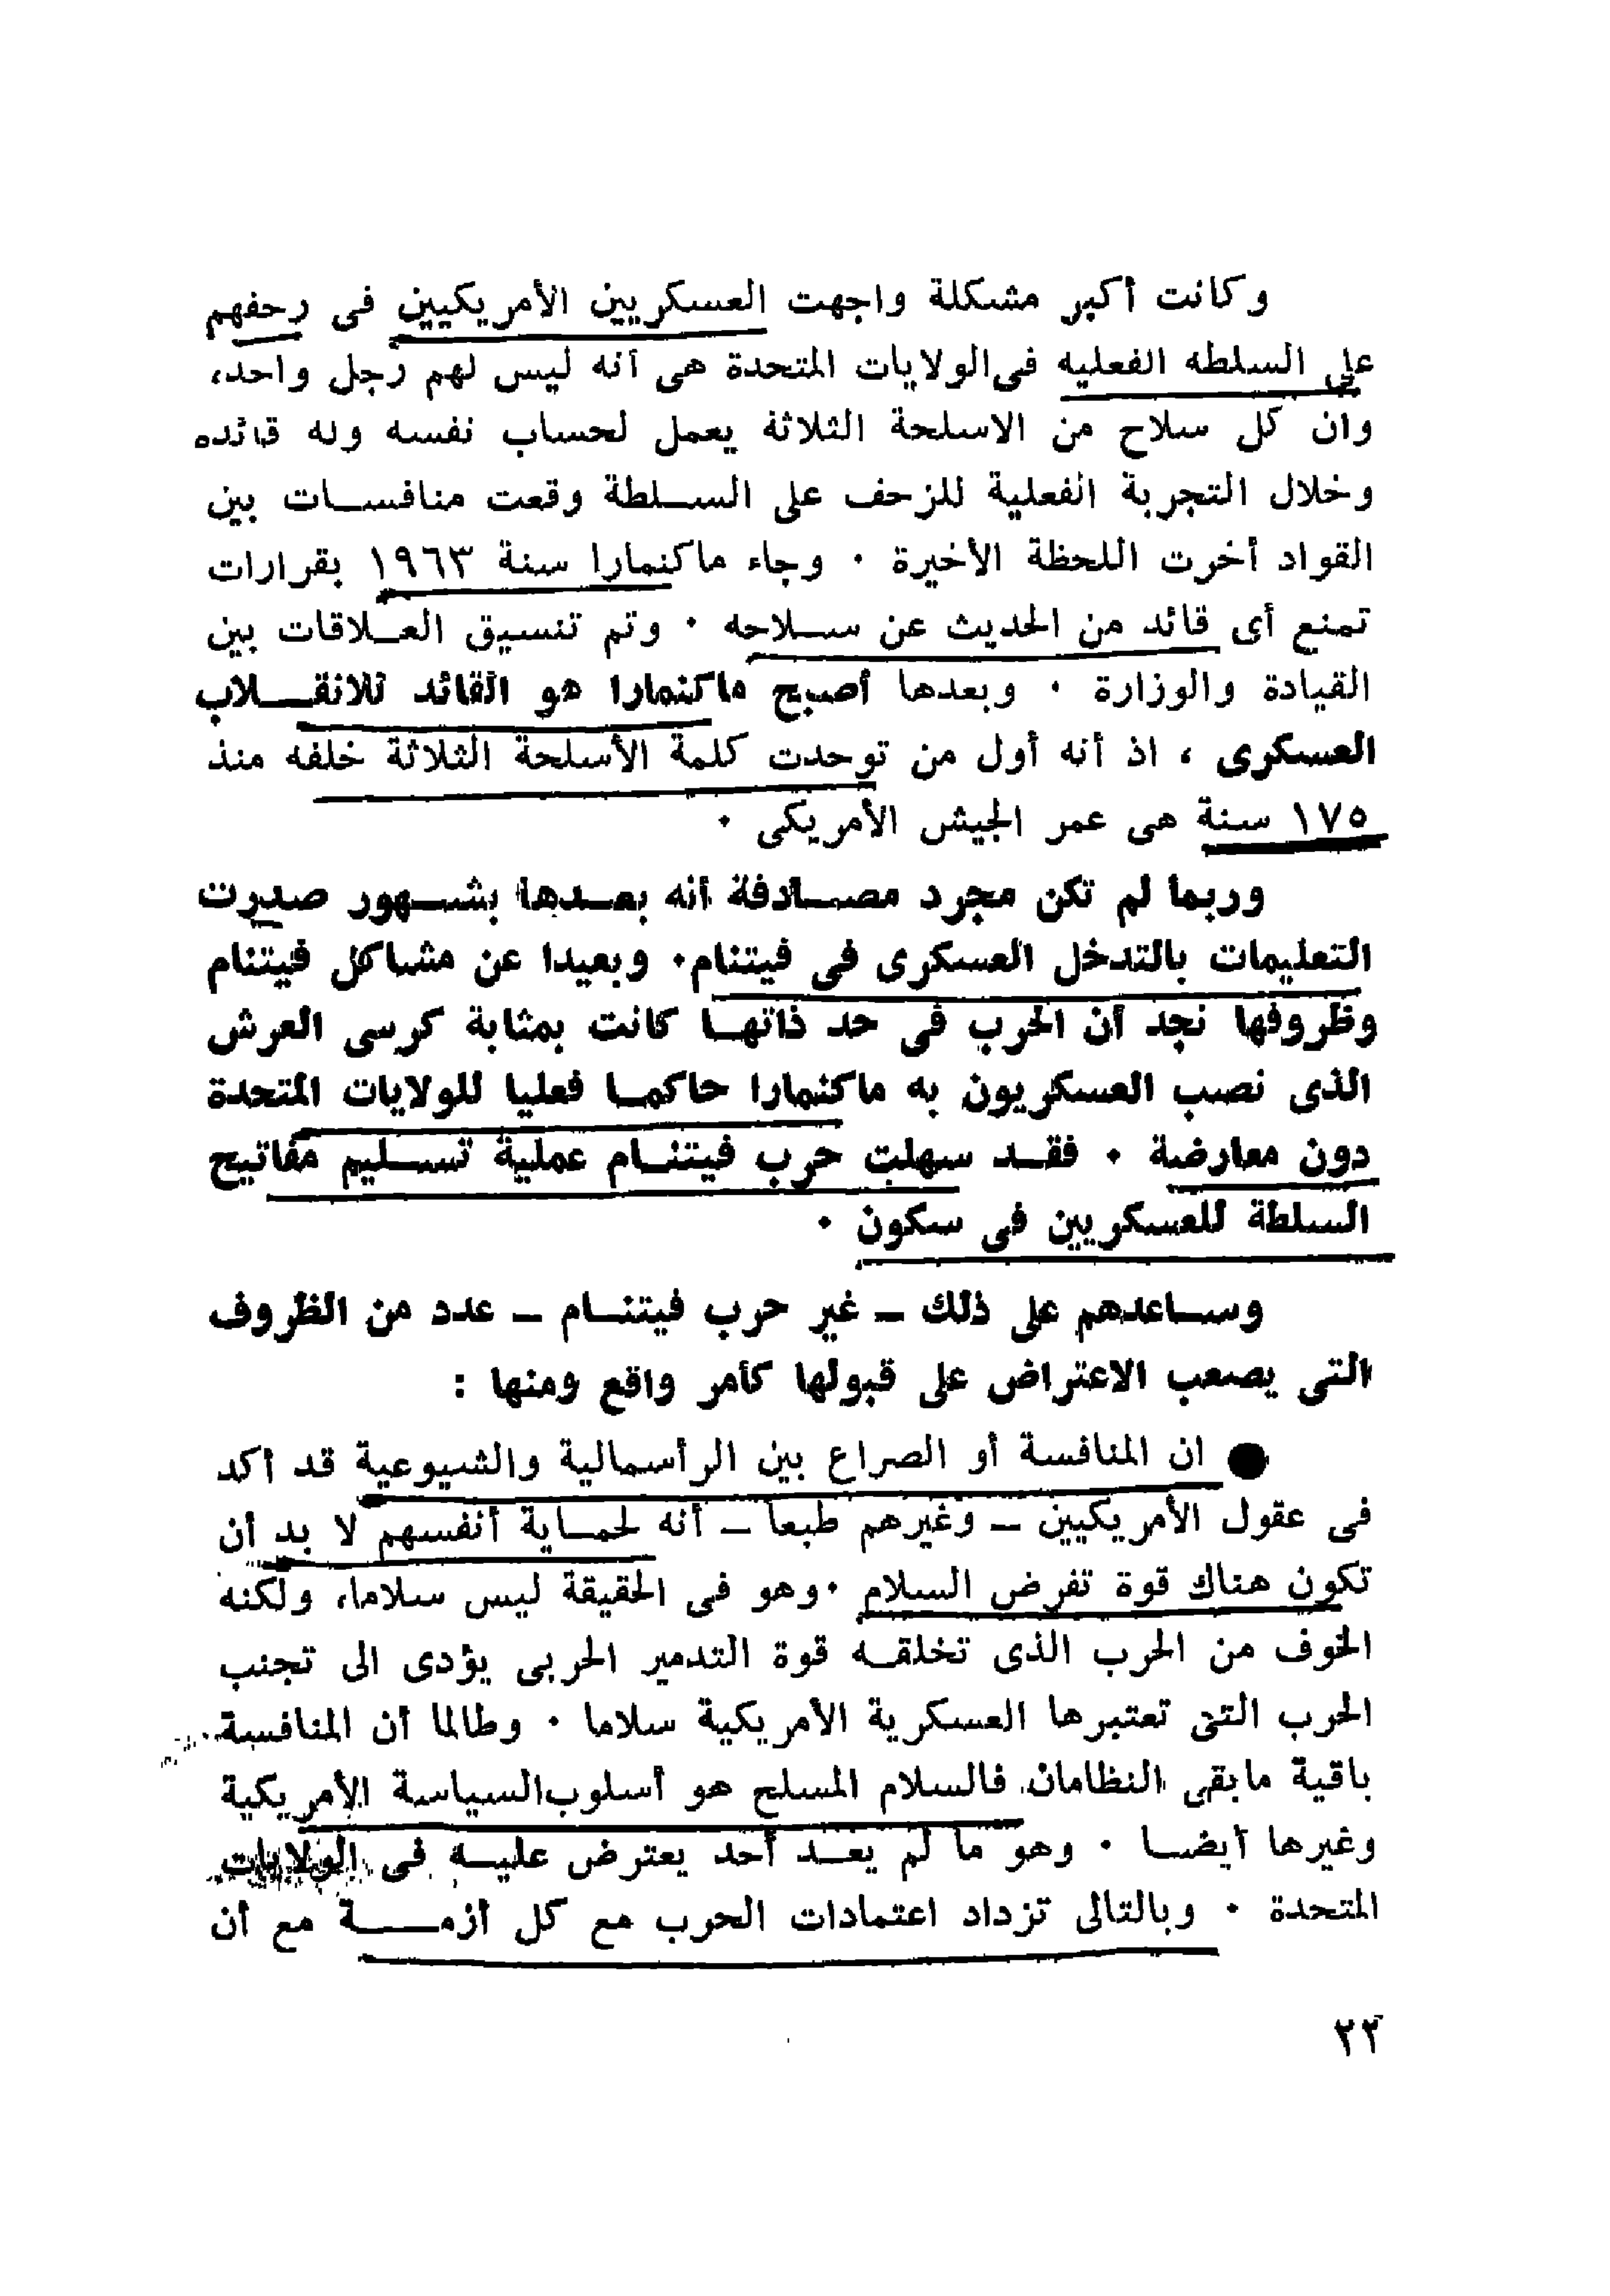 وكانت أكبر مشكلة واجهت العسكريين الأمريكيين فى زحفهم
على السلطه الفعليه فى الولايات المتحدة هى أنه ليس لهم رجل واحد،
وان كل سلاح من الاسلحة الثلاثة يعمل لحساب نفسه وله قائده
وخلال التجربة الفعلية للزحف على الســلطة وقعت منافســات بين
القواد أخرت اللحظة الأخيرة ٠ وجاء ماكنمارا سنة ١٩٦٣ بقرارات
تمنع أى قائد من الحديث عن ســلاحه ٠ وتم تنسيق العــلاقات بين
القيادة والوزارة ٠ وبعدها أصبح ماكنمارا هو القائد للانقــلاب
العسكرى ، اذ أنه أول من توحدت كلمة الأسلحة الثلاثة خلفه منذ
١٧٥ سنة هى عمر الجيش الأمريكى ٠
وربما لم تكن مجرد مصــادفة أنه بعــدها بشــهور صدرت
التعليمات بالتدخل العسكرى فى فيتنام٠ وبعيدا عن مشاكل فيتنام
وظروفها نجد أن الحرب فى حد ذاتهــا كانت بمثابة كرسى العرش
الذى نصب العسكريون به ماكنمارا حاكمــا فعليا للولايات المتحدة
دون معارضة ٠ فقــد سهلت حرب فيتنــام عملية تســليم مفاتيح
السلطة للعسكريين فى سكون ٠
وســاعدهم على ذلك ــ غير حرب فيتنــام ــ عدد من الظروف
التى يصعب الاعتراض على قبولها كأمر واقع ومنها :
● ان المنافسة أو الصراع بين الرأسمالية والشيوعية قد أكد
فى عقول الأمريكيين ــ وغيرهم طبعا ــ أنه لحمــاية أنفسهم لا بد أن
تكون هناك قوة تفرض السلام ٠وهو فى الحقيقة ليس سلاما، ولكنه
الخوف من الحرب الذى تخلقــه قوة التدمير الحربى يؤدى الى تجنب
الحرب التى تعتبرها العسكرية الأمريكية سلاما ٠ وطالما أن المنافسة
باقية مابقى النظامان فالسلام المسلح هو أسلوب السياسة الأمريكية
وغيرها أيضــا ٠ وهو ما لم يعــد أحد يعترض عليــه فى الولايات
المتحدة ٠ وبالتالى تزداد اعتمادات الحرب مع كل أزمــــة مع أن
٢٢